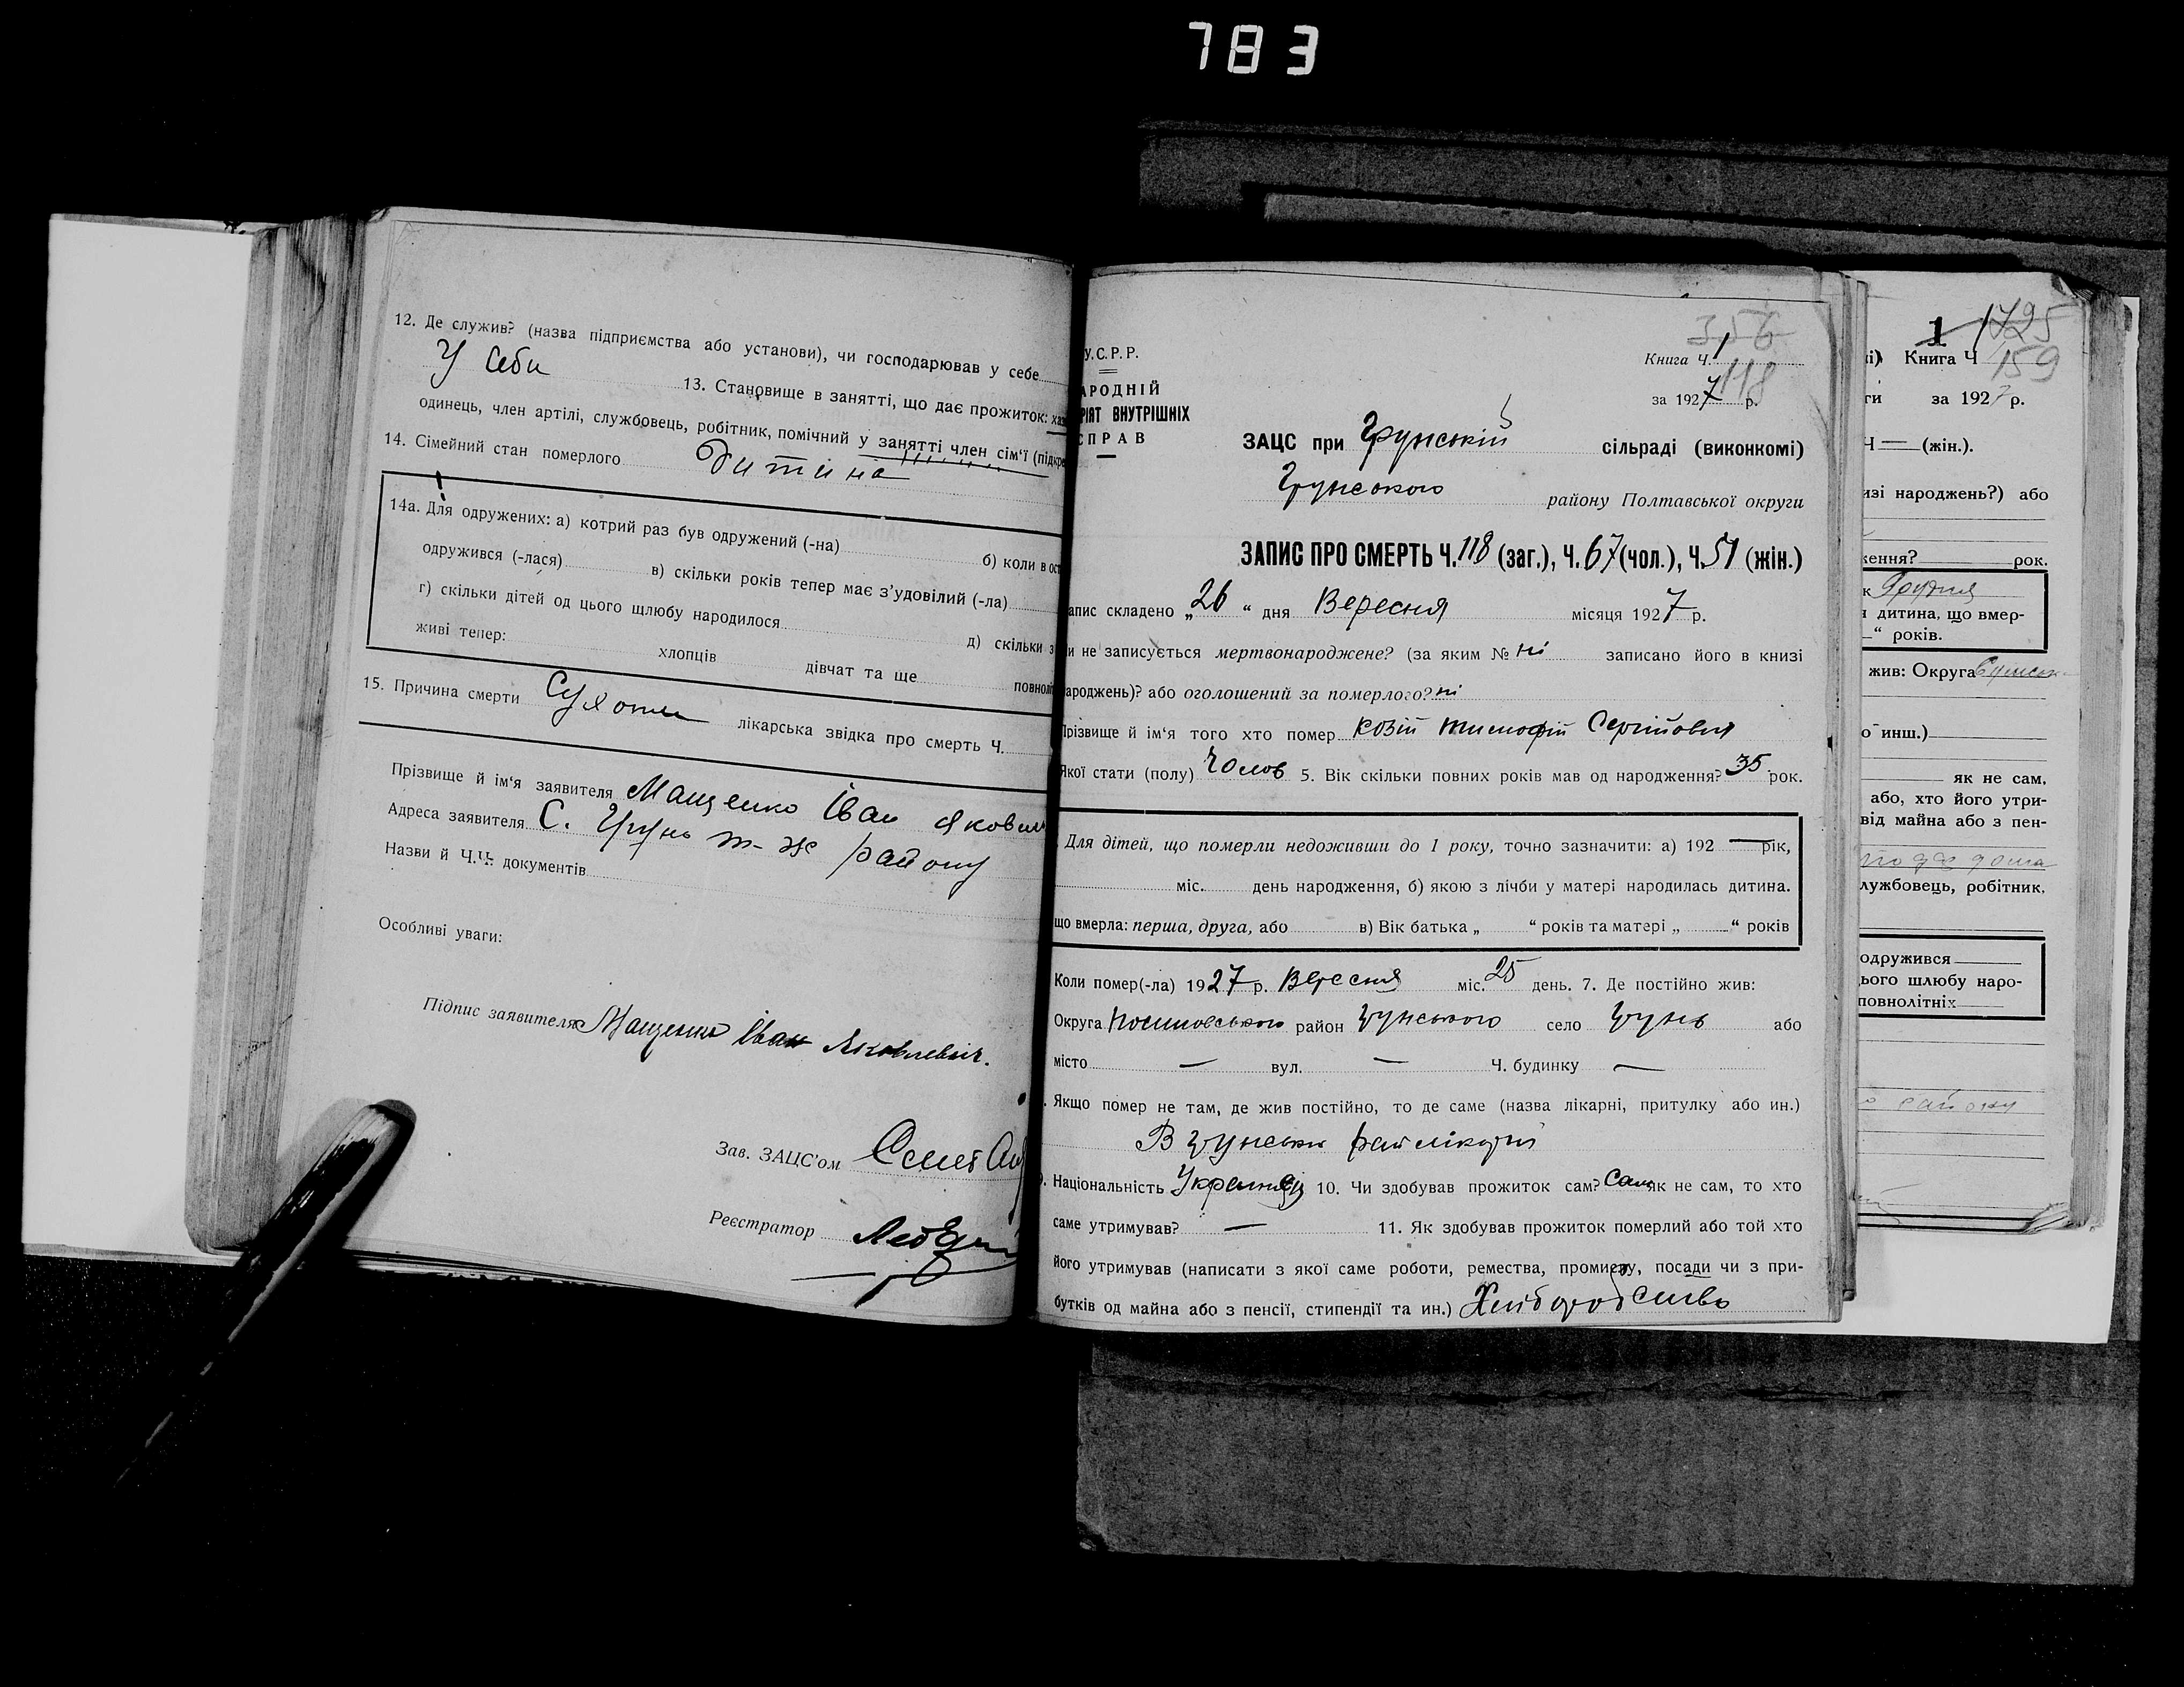 783
12. Де служив? (назва підприємства або установи), чи господарював у себе
У себи 13. Становище в занятті, що дає прожиток: хаз
одинець, член артілі, службовець, робітник, помічний у занятті член сім'ї (підкре
14. Сімейний стан померлого Дитина
14а. Для одружених: а) котрий раз був одружений (-на) б) коли в ост
одружився (-лася) в) скільки років тепер має з'удовілий (-ла)
г) скільки дітей од цього шлюбу народилося д) скільки з
живі тепер: хлопців дівчат та ще повноліт
15. Причина смерти Сухоти лікарська звідка про смерть Ч.
Прізвище й ім'я заявителя Мащенко Іван Яковл
Адреса заявителя С. Грунь т-ж району
Назви й Ч.Ч. документів
Особливі уваги:
Підпис заявителя Мащенко Іван Яковлевич.
Зав. ЗАЦС'ом
Реєстратор
У.С.Р.Р.
АРОДНІЙ
РІЯТ ВНУТРІШНІХ
СПРАВ
356
Книга Ч. 1
118
за 1927 р.
ЗАЦС при Грунській сільраді (виконкомі)
Грунського району Полтавської округи
ЗАПИС ПРО СМЕРТЬ Ч. 118 (заг.), Ч. 67 (чол.), Ч. 51 (жін.)
апис складено „26“ дня Вересня місяця 1927 р.
и не записується мертвонароджене? (за яким № ні записано його в книзі
ароджень)? або оголошений за померлого? ні
Прізвище й ім'я того хто помер Козій Тимофій Сергійович
Якої стати (полу) Чолов 5. Вік скільки повних років мав од народження? 35 рок.
Для дітей, що померли недоживши до 1 року, точно зазначити: а) 192 — рік,
міс. день народження, б) якою з лічби у матері народилась дитина.
що вмерла: перша, друга, або в) Вік батька „ “ років та матері „ “ років
Коли помер(-ла) 1927 р. Вересня міс. 25 день. 7. Де постійно жив:
Округа район Грунського село Грунь або
місто — вул. — Ч. будинку —
. Якщо помер не там, де жив постійно, то де саме (назва лікарні, притулку або ин.)
В Грунській рай лікарні
9. Національність Украинец 10. Чи здобував прожиток сам? Сам як не сам, то хто
саме утримував? — 11. Як здобував прожиток померлий або той хто
його утримував (написати з якої саме роботи, ремества, промислу, посади чи з при-
бутків од майна або з пенсії, стипендії та ин.) Хліборобство
1 1725
і) Книга Ч 159
ги за 1927 р.
Ч — (жін.).
изі народжень?) або
ження? рок.
к Грудня
я дитина, що вмер-
“ років.
жив: Округа Сумськ
о инш.)
як не сам,
або, хто його утри-
від майна або з пен-
лужбовець, робітник,
одружився
ього шлюбу наро-
повнолітніх
району